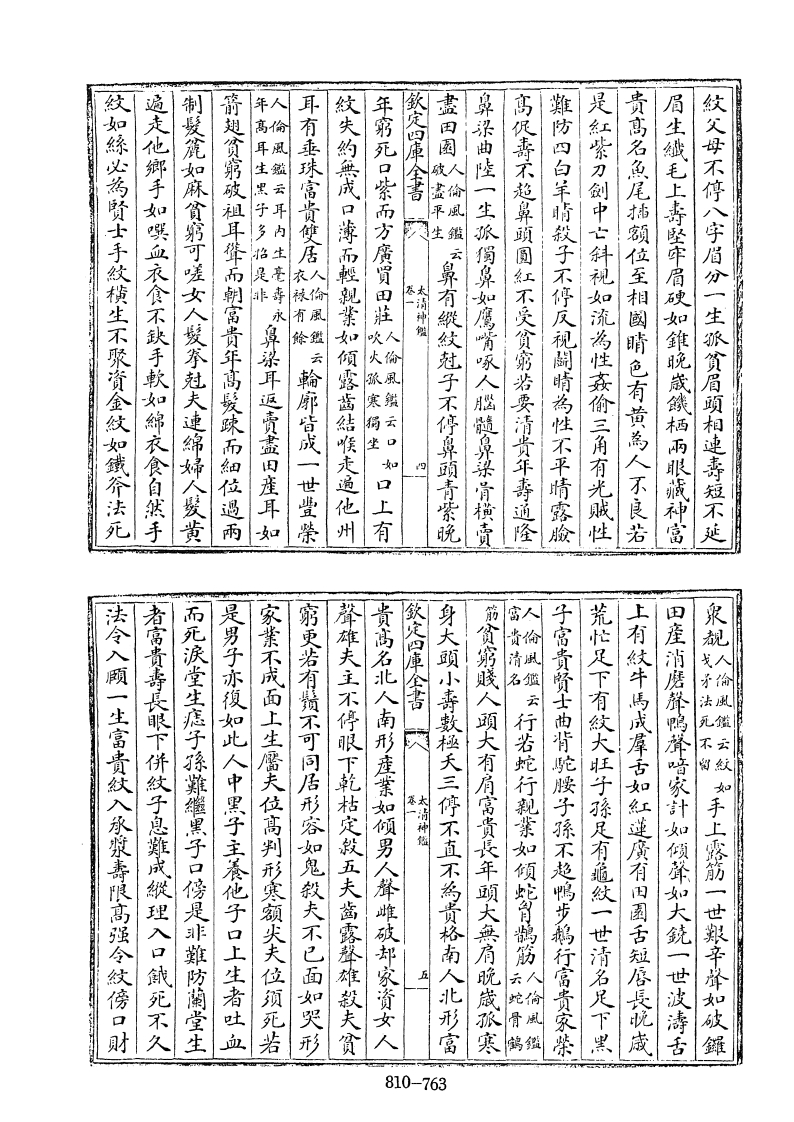 紋父母不停八字眉分一生孤貧眉頭相連壽短不延
眉生纖毛上壽堅牢眉硬如錐晚歲饑栖兩眼藏神富
貴髙名魚尾插額位至相國睛色有黄為人不良若
是紅紫刀劍中亡斜視如流為性姦偷三角有光賊性
難防四白羊睛殺子不停反視鬬睛為性不平睛露臉
髙促壽不超鼻頭圓紅不受貧窮若要清貴年壽通隆
鼻梁曲陸一生孤獨鼻如鷹嘴啄人腦髓鼻梁骨橫賣
盡田園人倫風鑑云破盡平生鼻有縱紋尅子不停鼻頭青紫晚
欽定四庫全書 太清神鑑 卷一 四
年窮死口紫而方廣買田莊人倫風鑑云口如吹火孤寒獨坐口上有
紋失約無成口薄而輕親業如傾露齒結喉走遍他州
耳有垂珠富貴雙居人倫風鑑云衣祿有餘輪廓皆成一世豐榮
人倫風鑑云耳內生毫壽永年髙耳生黑子多招是非鼻梁耳返賣盡田産耳如
箭翅貧窮破祖耳聳而朝富貴年髙髮疎而細位過兩
制髮麄如麻貧窮可嗟女人髮拳尅夫連綿婦人髮黄
遍走他鄉手如噀血衣食不缺手軟如綿衣食自然手
紋如絲必為賢士手紋橫生不聚資金紋如鐵斧法死
衆覩人倫風鑑云紋如戈矛法死不留手上露筋一世艱辛聲如破鑼
田産消磨聲鴨聲喑家計如傾聲如大鐃一世波濤舌
上有紋牛馬成羣舌如紅蓮廣有田園舌短唇長晚歲
荒忙足下有紋大旺子孫足有龜紋一世清名足下黑
子富貴賢士曲背駝腰子孫不超鴨步鵝行富貴家榮
人倫風鑑云富貴清名行若蛇行親業如傾蛇骨鵲筋人倫風鑑云蛇骨鶴
筋貧窮賤人頭大有肩富貴長年頭大無肩晚歲孤寒
身大頭小壽數極夭三停不直不為貴格南人北形富
欽定四庫全書 太清神鑑 卷一 五
貴髙名北人南形産業如傾男人聲雌破却家資女人
聲雄夫主不停眼下乾枯定殺五夫齒露聲雄殺夫貧
窮更若有鬚不可同居形容如鬼殺夫不已面如哭形
家業不成面上生靨夫位髙判形寒額尖夫位須死若
是男子亦復如此人中黑子主養他子口上生者吐血
而死淚堂生痣子孫難繼黑子口傍是非難防蘭堂生
者富貴壽長眼下併紋子息難成縱理入口餓死不久
法令入頤一生富貴紋入承漿壽限髙强令紋傍口財
810-763